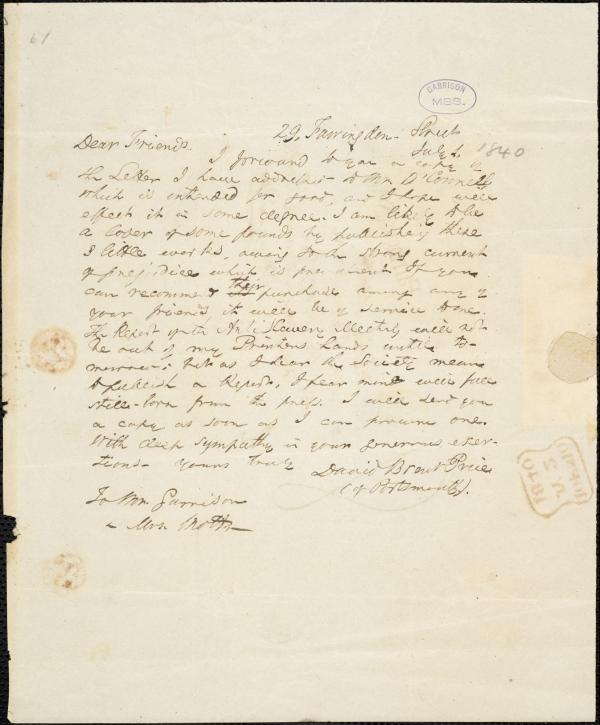 61
GARRISON
MSS.
29, Farringdon Street
Dear Friends. July 2 1840
I forward to you a copy of
the Letter I have addressed to Mr. O'Connell,
which is intended for good, and I hope will
effect it in some degree. I am likely to be
a loser of some pounds by publishing these
3 little works, owing to the strong current
of prejudice which is prevalent. If you
can recommend their purchase among any of
your friends, it will be of service to me.
The Report of the Anti Slavery Meeting will not
be out of my Printers hands until to-
morrow; but as I hear the Society means
to publish a Report, I fear mine will fall
still-born from the press. I will send you
a copy as soon as I can procure one.
With deep sympathy in your generous exer-
tions yours truly David Brent Price
(of Portsmouth).
To Mr. Garrison
& Mrs. Mott
1840